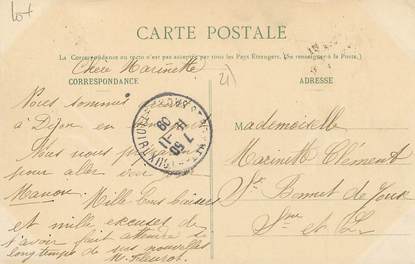 lot
CARTE POSTALE
La Correspondance au recto n'est pas acceptée par tous les Pays Étrangers. (Se renseigner à la Poste.)
Chère Marinette 21
CORRESPONDANCE
ADRESSE
Nous sommes
à Dijon en
Nous nous
pour aller voir
Manon. Mille bons baisers
et mille excuses de
t'avoir fait attendre si
longtemps de ses nouvelles
M.
Mademoiselle
Marinette Clément
St Bonnet de Joux
S ne et L.